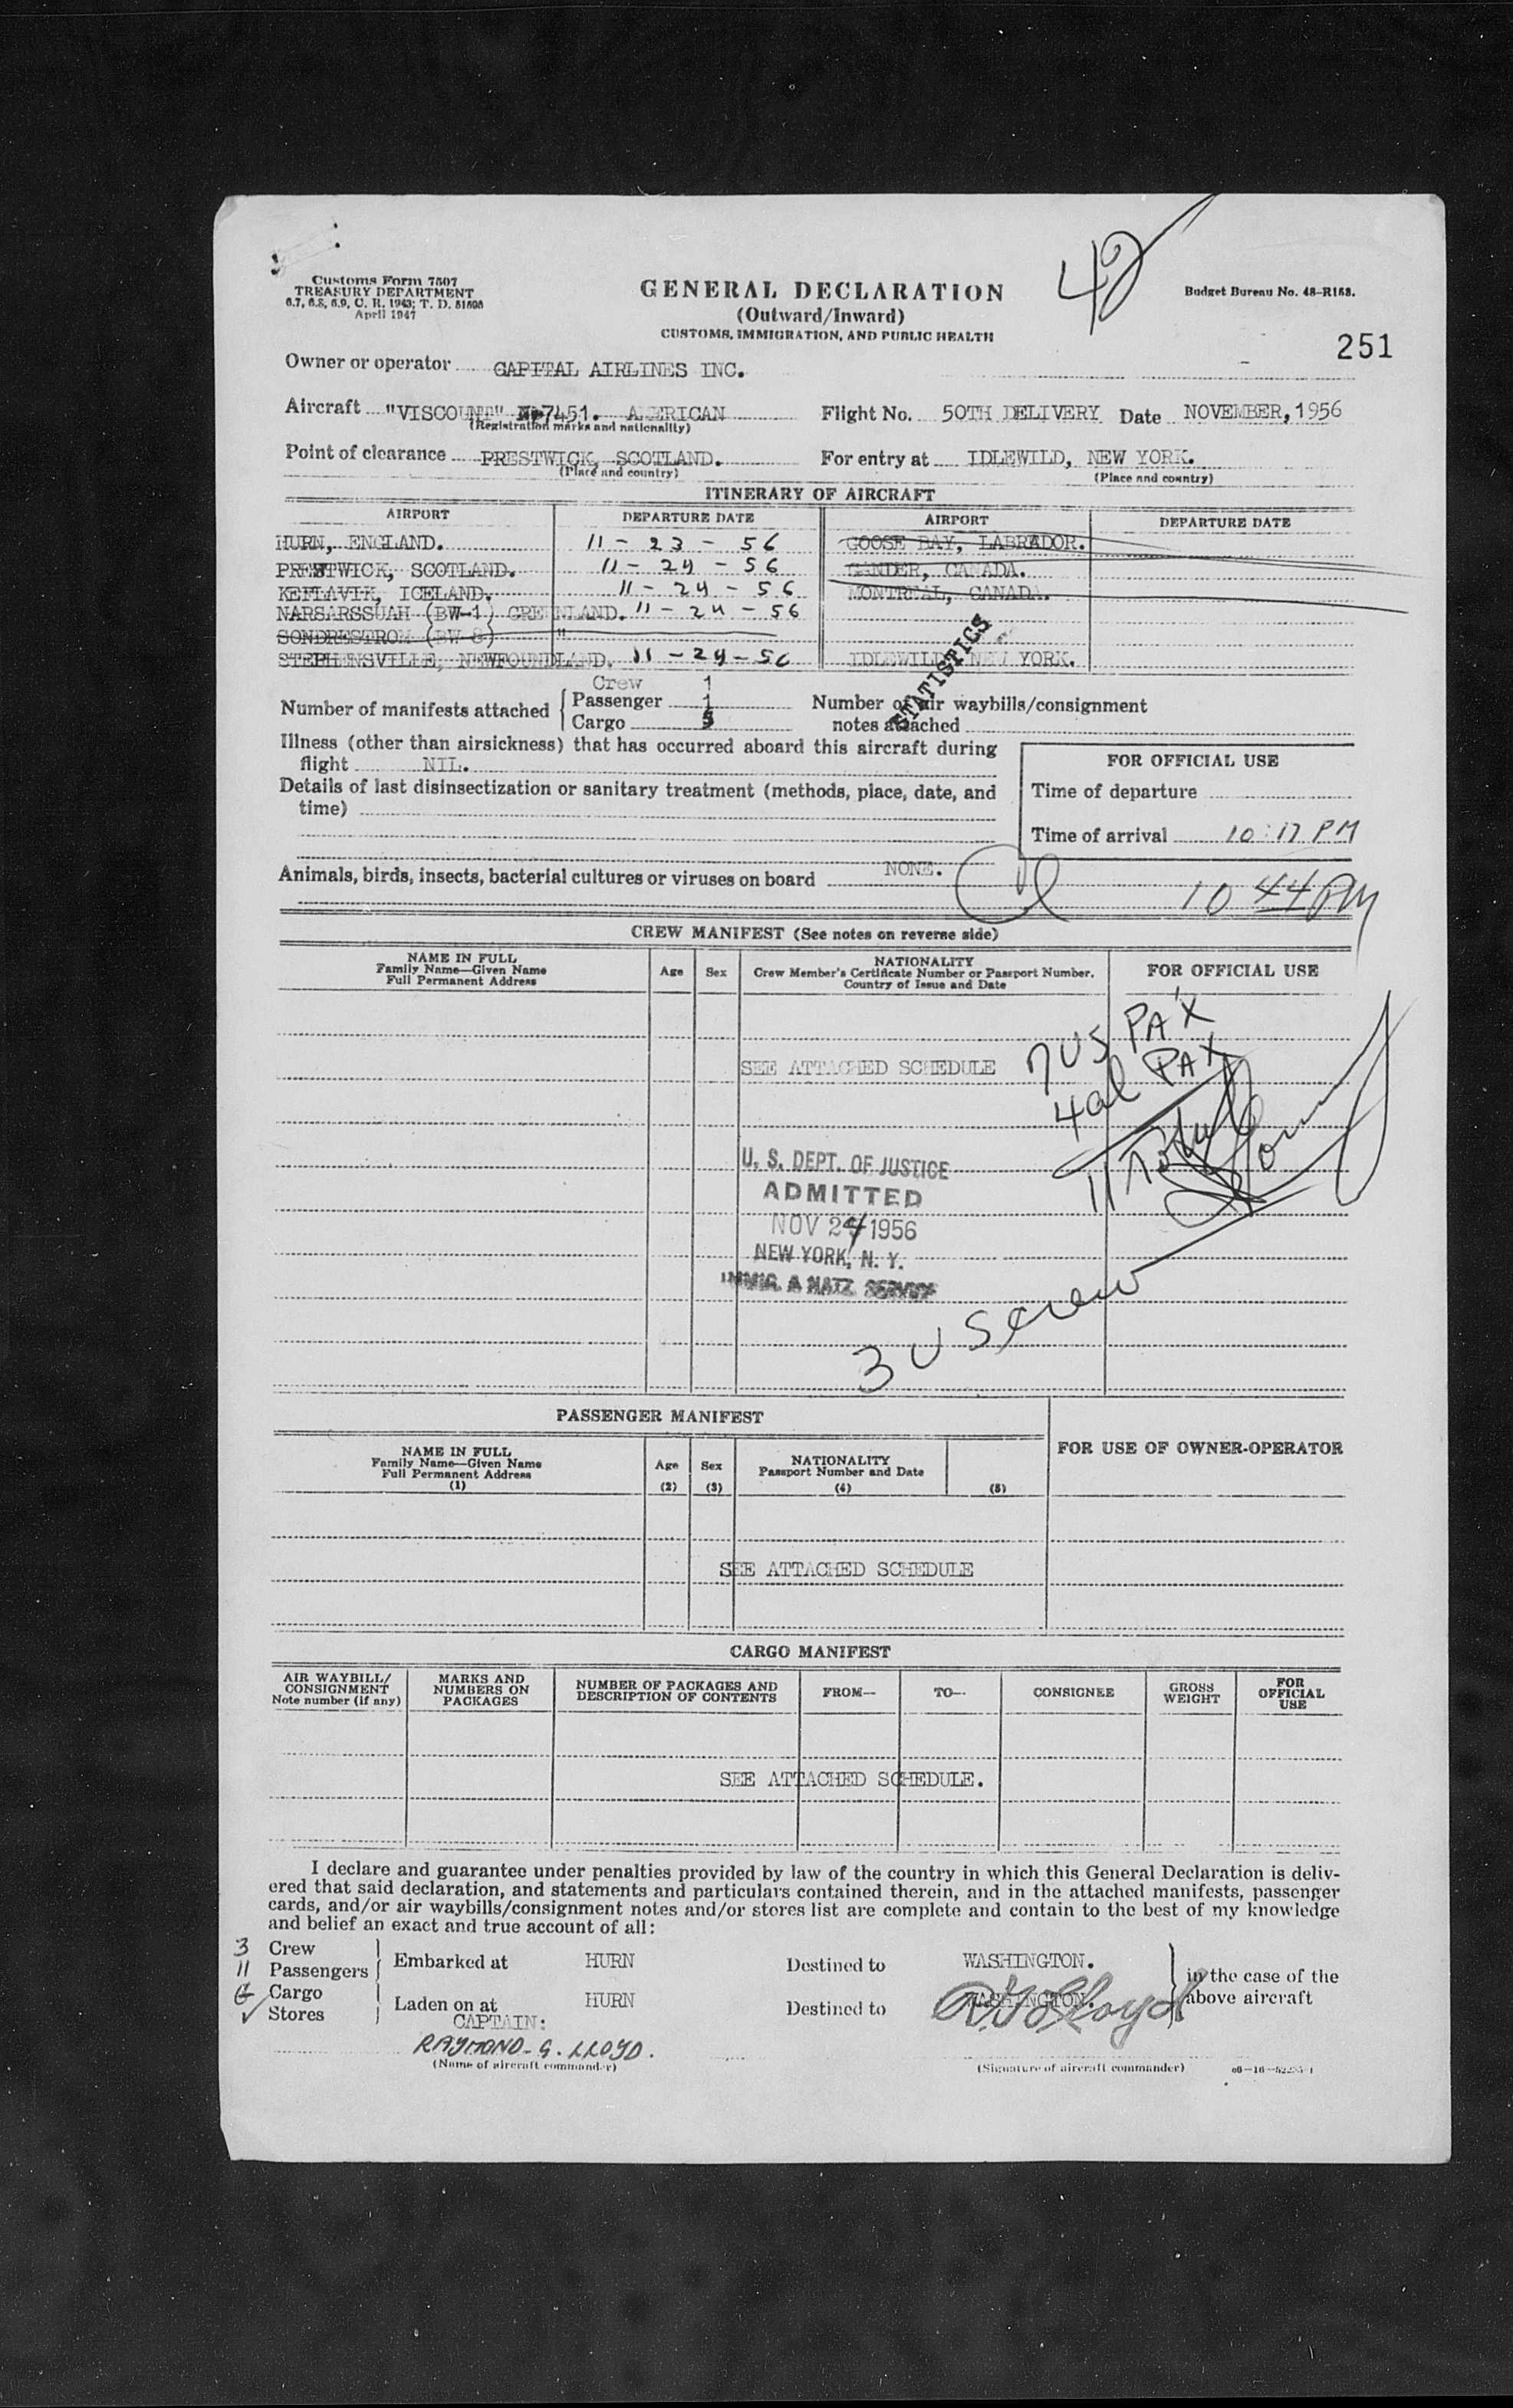 42
Customs Form 7507
TREASURY DEPARTMENT
6.7, 6.8, 6.9, C. R. 1943; T. D. 51696
April 1947
GENERAL DECLARATION
(Outward/Inward)
CUSTOMS, IMMIGRATION, AND PUBLIC HEALTH
Budget Bureau No. 48-R168.
251
Owner or operator CAPITAL AIRLINES INC.
Aircraft "VISCOUNT" N-7451. AMERICAN Flight No. 50TH DELIVERY Date NOVEMBER, 1956
(Registration marks and nationality)
Point of clearance PRESTWICK, SCOTLAND. For entry at IDLEWILD, NEW YORK.
(Place and country) (Place and country)
ITINERARY OF AIRCRAFT
AIRPORT DEPARTURE DATE AIRPORT DEPARTURE DATE
HURN, ENGLAND. 11-23-56 GOOSE BAY, LABRADOR.
PRESTWICK, SCOTLAND. 11-24-56 GANDER, CANADA.
KEFLAVIK, ICELAND. 11-24-56 MONTREAL, CANADA.
NARSARSSUAH (BW-1) GREENLAND. 11-24-56
SONDRESTROM (BW-8) "
STEPHENSVILLE, NEWFOUNDLAND. 11-24-56 IDLEWILD, NEW YORK.
STATISTICS
Crew 1
Number of manifests attached Passenger 1
Cargo 5
Number of air waybills/consignment
notes attached
Illness (other than airsickness) that has occurred aboard this aircraft during
flight NIL.
Details of last disinsectization or sanitary treatment (methods, place, date, and
time)
FOR OFFICIAL USE
Time of departure
Time of arrival 10:17 PM
Animals, birds, insects, bacterial cultures or viruses on board NONE.
10 44 PM
CREW MANIFEST (See notes on reverse side)
NAME IN FULL
Family Name—Given Name
Full Permanent Address
Age Sex
NATIONALITY
Crew Member's Certificate Number or Passport Number.
Country of Issue and Date
FOR OFFICIAL USE
7 US PAX
SEE ATTACHED SCHEDULE
4 al PAX
11 Total
U. S. DEPT. OF JUSTICE
ADMITTED
NOV 24 1956
NEW YORK, N. Y.
IMMIG. & NATZ. SERVICE
3 US crew
PASSENGER MANIFEST
NAME IN FULL
Family Name—Given Name
Full Permanent Address
(1)
Age
(2)
Sex
(3)
NATIONALITY
Passport Number and Date
(4)
(5)
FOR USE OF OWNER-OPERATOR
SEE ATTACHED SCHEDULE
CARGO MANIFEST
AIR WAYBILL/
CONSIGNMENT
Note number (if any)
MARKS AND
NUMBERS ON
PACKAGES
NUMBER OF PACKAGES AND
DESCRIPTION OF CONTENTS
FROM—
TO—
CONSIGNEE
GROSS
WEIGHT
FOR
OFFICIAL
USE
SEE ATTACHED SCHEDULE.
I declare and guarantee under penalties provided by law of the country in which this General Declaration is deliv-
ered that said declaration, and statements and particulars contained therein, and in the attached manifests, passenger
cards, and/or air waybills/consignment notes and/or stores list are complete and contain to the best of my knowledge
and belief an exact and true account of all:
3 Crew
11 Passengers
Cargo
✓ Stores
Embarked at HURN Destined to WASHINGTON.
Laden on at HURN Destined to WASHINGTON.
in the case of the
above aircraft
CAPTAIN:
RAYMOND. G. LLOYD. R G Lloyd
(Name of aircraft commander) (Signature of aircraft commander)